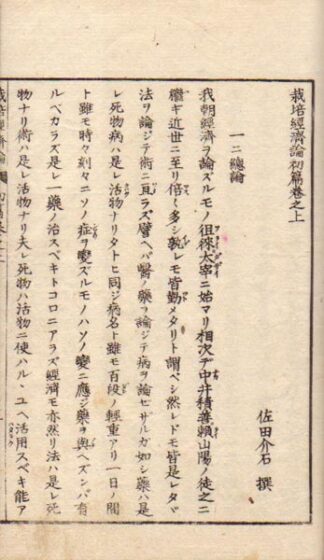 栽培經濟論初篇卷之上
佐田介石 撰
一二總論
我朝經濟ヲ論ズルモノ徂徠太宰ニ始マリ相次デ中井積善賴山陽ノ徒之ニ
繼ギ近世ニ至リ倍〻多シ孰レモ皆勤メタリト謂ベシ然レドモ皆是レタヾ
法ヲ論ジテ術ニ亘ラズ譬ヘバ醫ノ藥ヲ論ジテ病ヲ論セザルガ如シ藥ハ是
レ死物病ハ是レ活物ナリタトヒ同ジ病名ト雖モ百段ノ輕重アリ一日ノ間
ト雖モ時々刻々ニソノ症ヲ變ズルモノハソノ變ニ應ジ藥ヲ與ヘズンバ有
ルベカラズ是レ一藥ノ治スベキトコロニアラズ經濟モ亦然リ法ハ是レ死
物ナリ術ハ是レ活物ナリ夫レ死物ハ活物ニ使ハル、ユヘ活用スベキ能ア
栽培經濟論 初篇卷之上